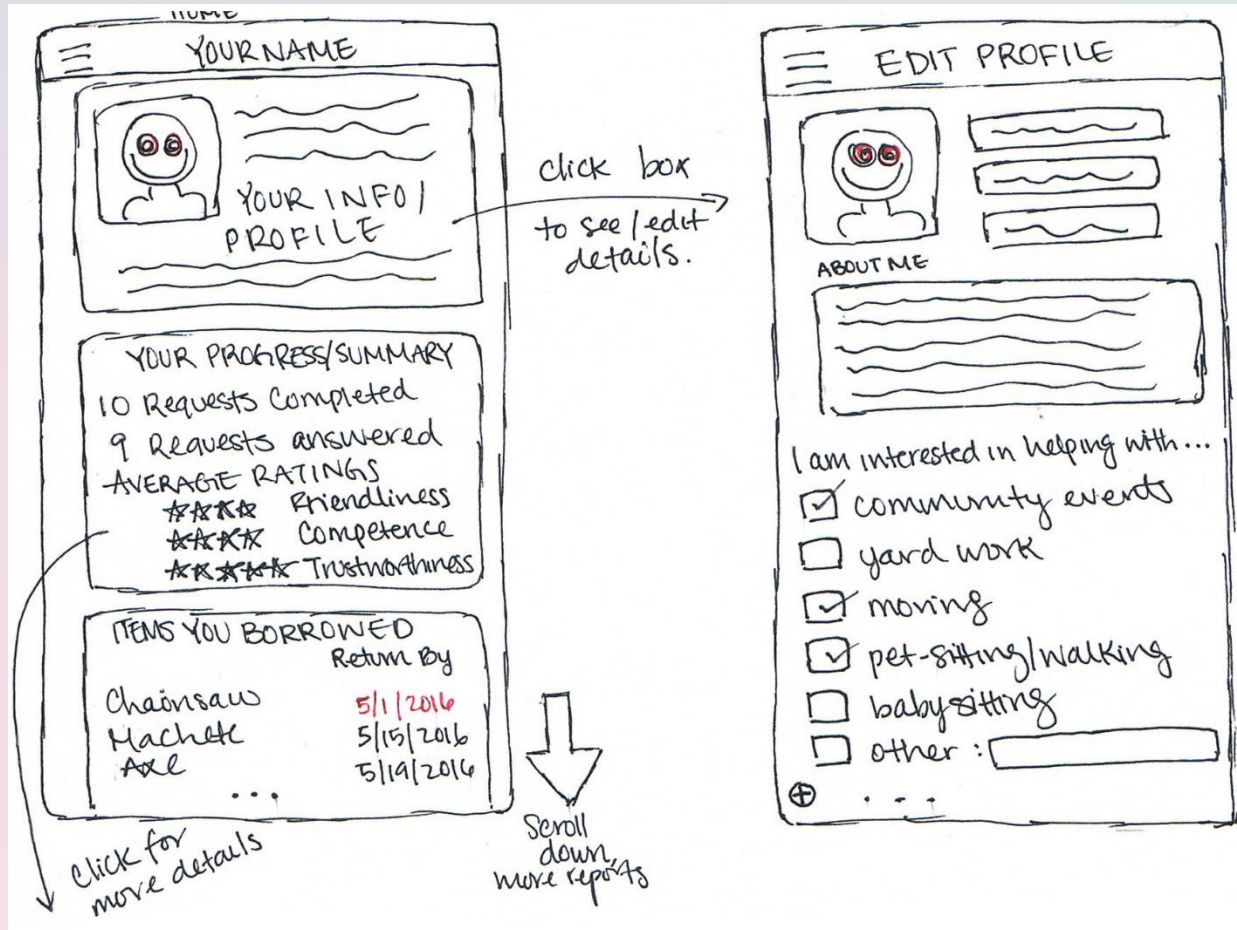 HOME
YOUR NAME
YOUR INFO/
PROFILE
click box
to see/edit
details.
YOUR PROGRESS/SUMMARY
10 Requests Completed
9 Requests answered
AVERAGE RATINGS
Friendliness
Competence
Trustworthiness
ITEMS YOU BORROWED
Return By
Chainsaw 5/1/2016
Machete 5/15/2016
Axe 5/19/2016
...
Click for
more details
Scroll
down,
more reports
EDIT PROFILE
ABOUT ME
I am interested in helping with...
community events
yard work
moving
pet-sitting/walking
babysitting
other :
...